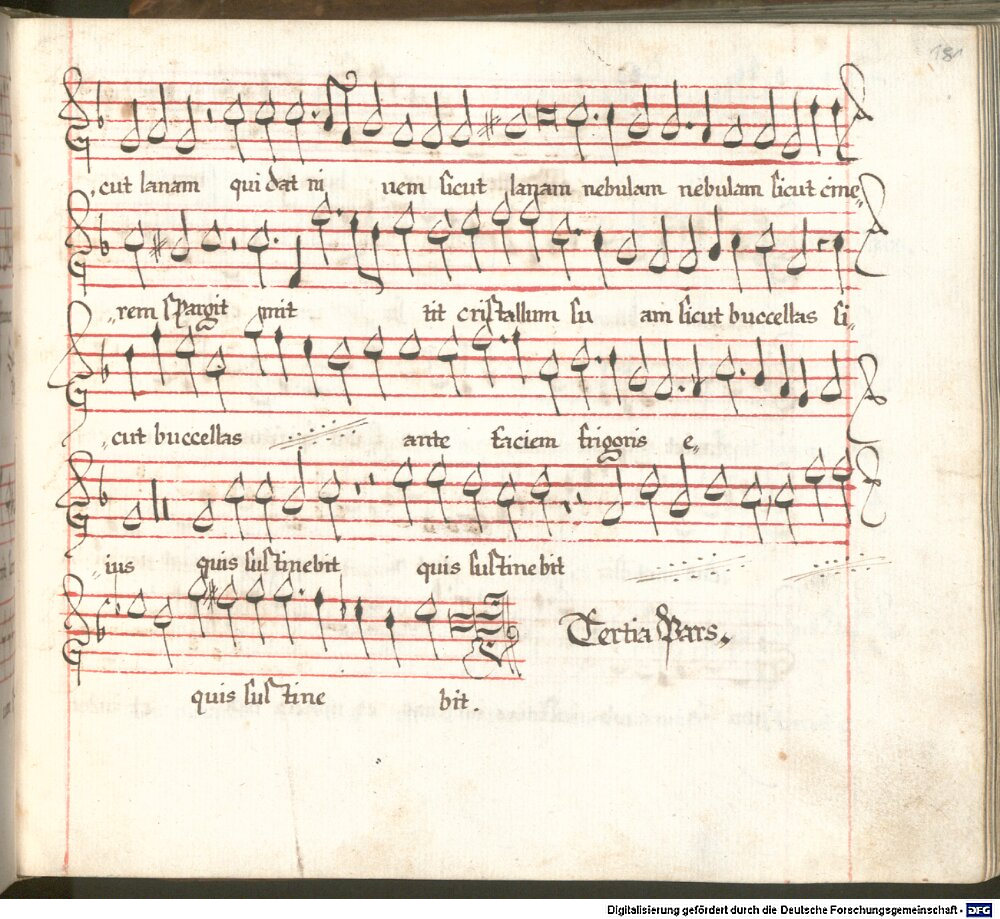 181
cut lanam qui dat ni uem sicut lanam nebulam nebulam sicut cine
rem spargit mit tit cristallum su am sicut buccellas si
cut buccellas ante faciem frigoris e
ius quis sustinebit quis sustinebit
quis sustine bit.
Tertia Pars
Digitalisierung gefördert durch die Deutsche Forschungsgemeinschaft - DFG